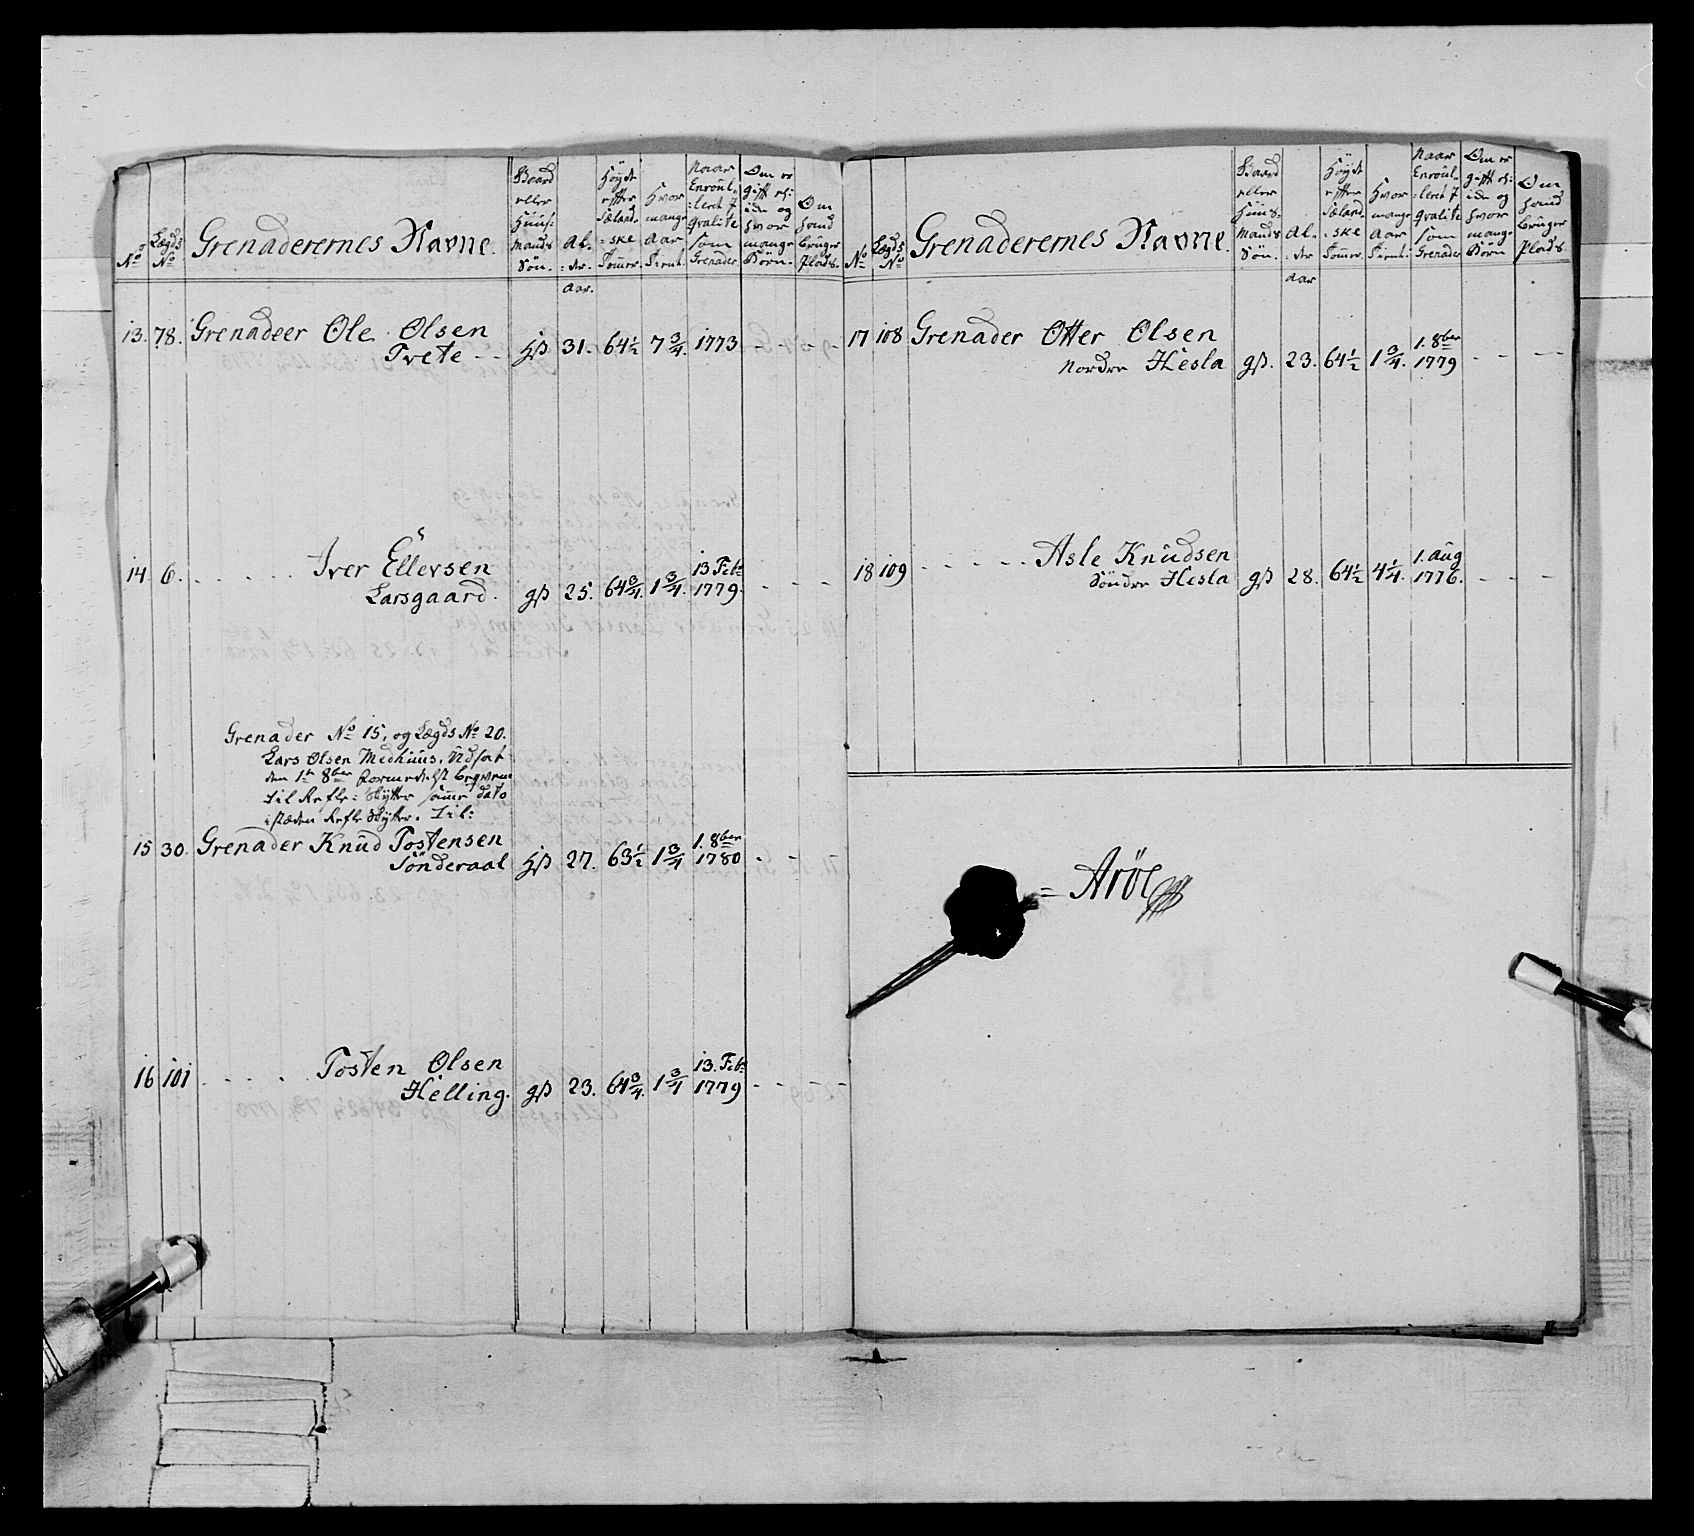 No
Lægds No
Grenaderernes Navne.
Gaard eller Huus- mands Søn.
Al- der
Høyde efter Siæland- ske Tommer.
Hvor mange Aar Tient.
Naar Enroul- lert i qvalite som Grenader
Om er gift eller ei og hvor mange Børn.
Om hand bruger Plads.
Aar.
13. 78. Grenadeer Ole Olsen
Tvete - - hß 31. 64½ 7¾. 1773 - - -
14. 6. . . . . . . Iver Ellevsen
Larsgaard. gß 25. 64¾. 1¾. 13 Feb: 1779. - - -
Grenader No 15, og Lægds No 20.
Lars Olsen Medhuus, Udsat
den 1te 8ber
til Refle: Skytter samme dato
i stæden Refle Skytter. Til:
15 30. Grenader Knud Tostensen
Sønderaal hß 27. 63½ 1¾ 1. 8ber 1780 - - -
16 101 . . . . . Tosten Olsen
Helling. gß 23. 64¾. 1¾ 13. Feb: 1779 - - -
No
Lægds No
Grenaderernes Navne.
Gaard eller Huus- mands Søn.
Al- der
Høyde efter Siæland- ske Tommer.
Hvor mange Aar Tient.
Naar Enroul- lert i qvalite som Grenader
Om er gift eller ei og hvor mange Børn
Om hand bruger Plads.
Aar
17 108 Grenader Otter Olsen
Nordre Hesla gß. 23. 64½ 1¾. 1. 8ber 1779 - - -
18 109 - - - - - Asle Knudsen
Søndre Hesla gß 28. 64½ 4¼. 1. Aug 1776. - - -